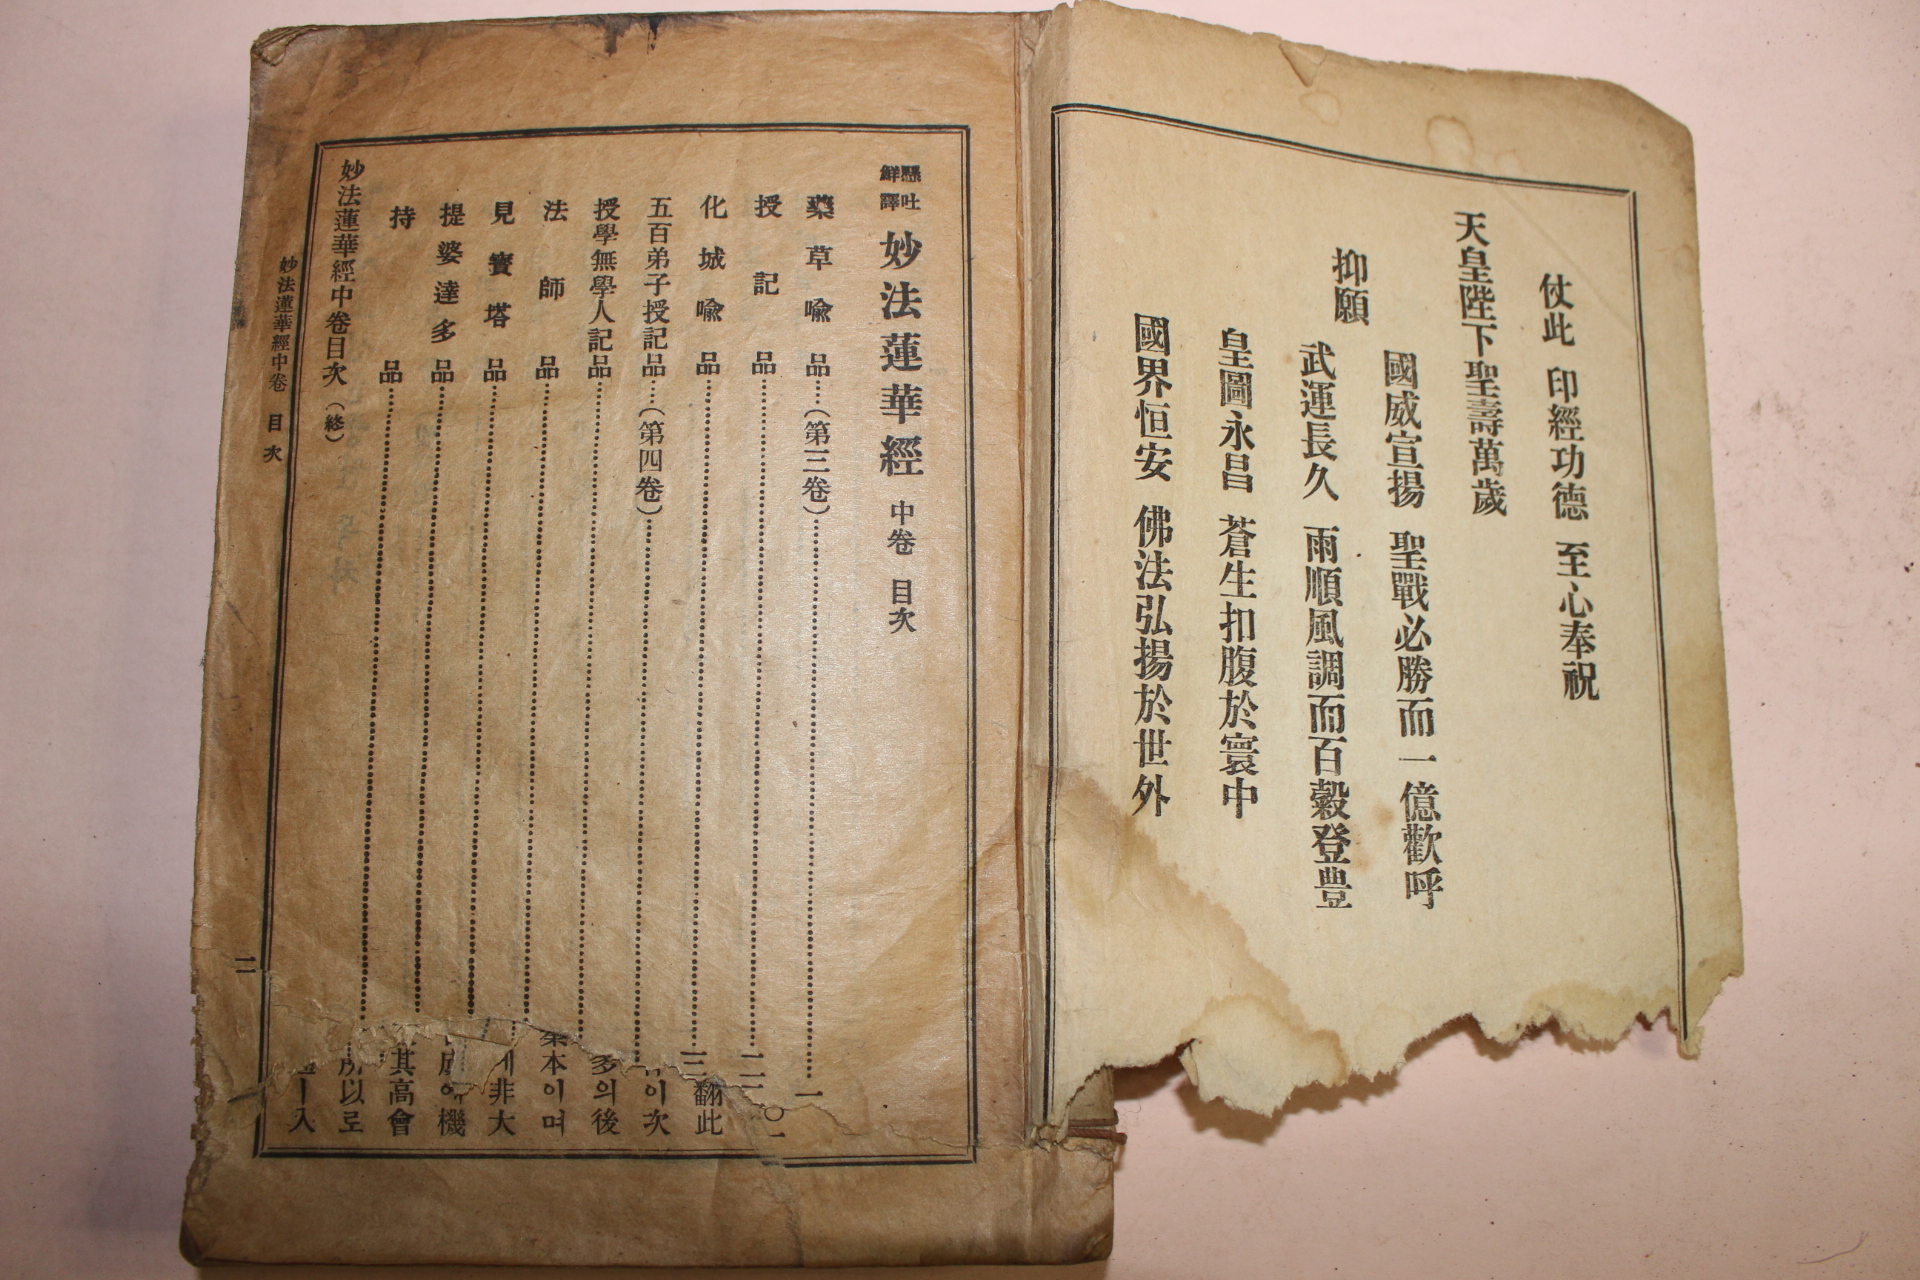 仗此 印經功德 至心奉祝
天皇陛下聖壽萬歲
國威宣揚 聖戰必勝而一億歡呼
抑願
武運長久 雨順風調而百穀登豊
皇圖永昌 蒼生扣腹於寰中
國界恒安 佛法弘揚於世外
懸吐
鮮譯
妙法蓮華經 中卷 目次
藥草喩品……(第三卷)……一
授記品……二
化城喩品……三
五百弟子授記品……(第四卷)……
授學無學人記品……
法師品……
見寳塔品……
提婆達多品……
持品……
妙法蓮華經中卷目次 (終)
妙法蓮華經中卷 目次
二
翻此
이次
多의後
本이며
非大
機
其高會
以로
ㅣ入